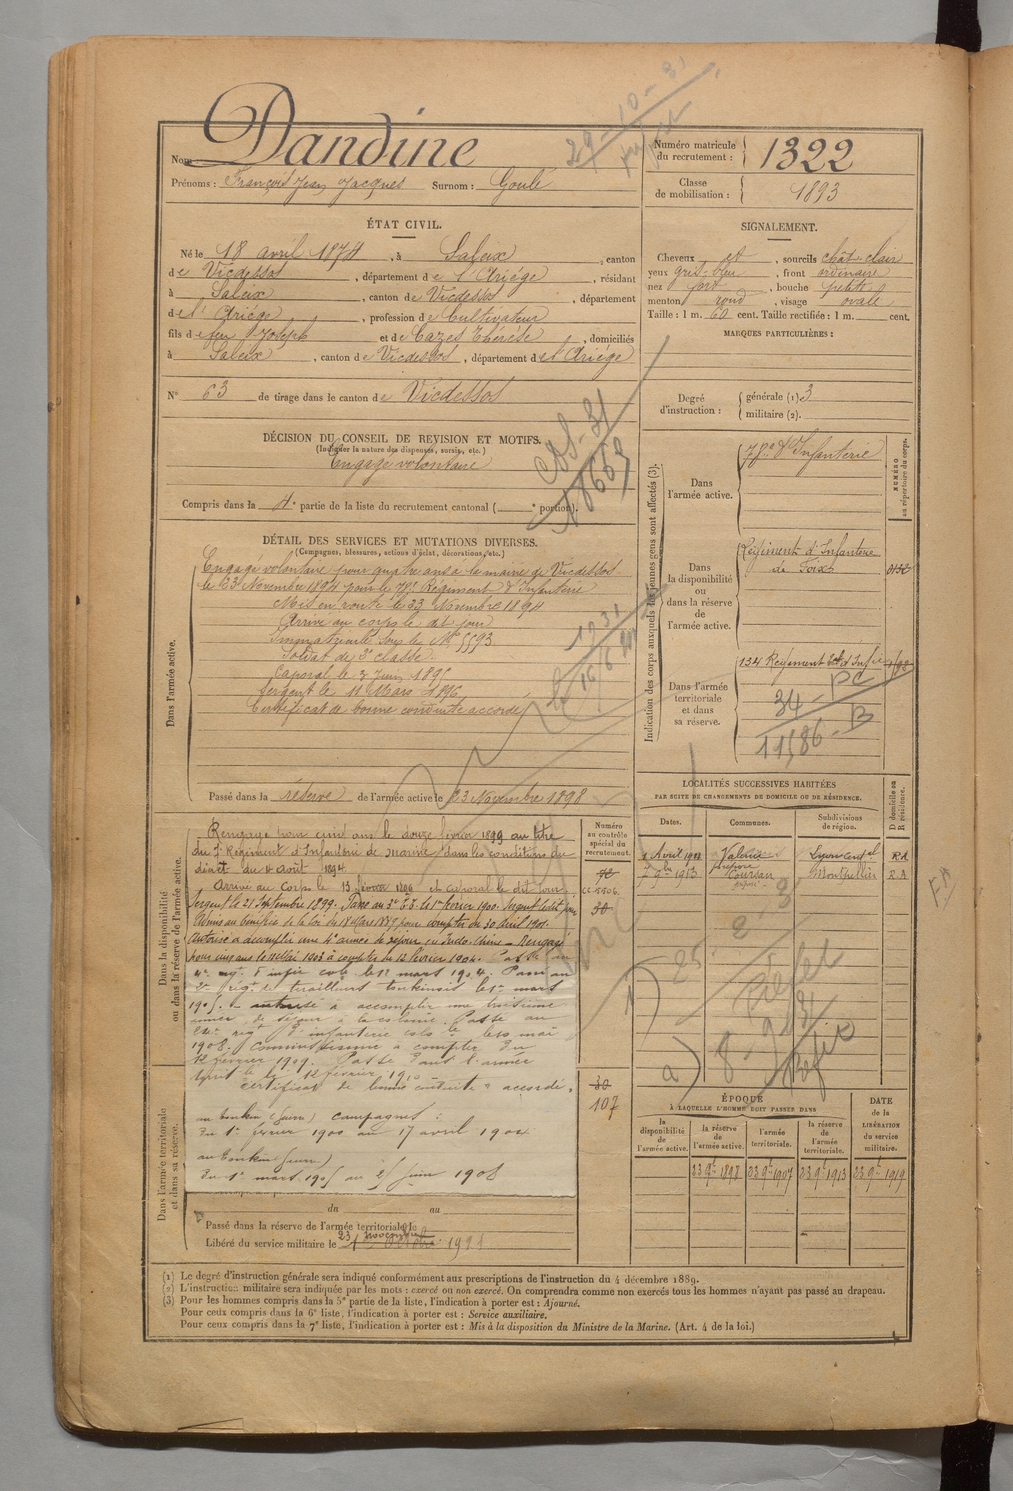 Nom : Dandine
Prénoms : François Jean Jacques Surnom : Goulé
Numéro matricule du recrutement : 1322
Classe de mobilisation : 1893
ÉTAT CIVIL.
Né le 18 avril 1874, à Saleix, canton
de Vicdessos, département de l'Ariège, résidant
à Saleix, canton de Vicdessos, département
de l'Ariège, profession de Cultivateur
fils de feu Joseph et de Cazes Thérèse, domiciliés
à Saleix, canton de Vicdessos, département de l'Ariège
N° 63 de tirage dans le canton de Vicdessos
SIGNALEMENT.
Cheveux et, sourcils chât-clair
yeux gris-bleu, front ordinaire
nez fort, bouche petite
menton rond, visage ovale
Taille : 1 m. 60 cent. Taille rectifiée : 1 m. cent.
MARQUES PARTICULIÈRES :
Degré d'instruction : générale (1) 3
militaire (2).
DÉCISION DU CONSEIL DE REVISION ET MOTIFS.
(Indiquer la nature des dispenses, sursis, etc.)
Engagé volontaire
Compris dans la 4e partie de la liste du recrutement cantonal ( e portion).
DÉTAIL DES SERVICES ET MUTATIONS DIVERSES.
(Campagnes, blessures, actions d'éclat, décorations, etc.)
Dans l'armée active.
Engagé volontaire pour quatre ans à la mairie de Vicdessos
le 23 Novembre 1894 pour le 78e Régiment d'Infanterie
Mis en route le 23 Novembre 1894
Arrivé au corps le dit jour
Immatriculé sous le No 5593
Soldat de 2e classe.
Caporal le 3 Juin 1895
Sergent le 11 Mars 1896
Certificat de bonne conduite accordé
Passé dans la réserve de l'armée active le 23 Novembre 1898
Indication des corps auxquels les jeunes gens sont affectés (3).
NUMÉRO au répertoire du corps.
Dans l'armée active.
78e d'Infanterie
Dans la disponibilité ou dans la réserve de l'armée active.
Régiment d'Infanterie
de Foix
Dans l'armée territoriale et dans sa réserve.
134 Régiment tal d'Infie
34 PC
11586 - B
LOCALITÉS SUCCESSIVES HABITÉES
PAR SUITE DE CHANGEMENTS DE DOMICILE OU DE RÉSIDENCE.
Dates. Communes. Subdivisions de région. D domicile ou R résidence.
Avril Valence Lyon Central RA
9bre 1913 Coursan Montpellier R.A
Dans la disponibilité ou dans la réserve de l'armée active.
Numéro au contrôle spécial du recrutement.
Rengagé pour cinq ans le douze février 1899 au titre
du 7e Régiment d'Infanterie de Marine dans les conditions du
décret du 4 Août 1894
Arrivé au Corps le 13 février et caporal le dit jour
Sergent le 21 Septembre 1899. Passé au 3e le 1er février 1900. Sergent le dit jour
Admis au bénéfice de la loi du 18 Mars 1889 pour compter du 30 avril 1901.
Autorisé à accomplir une 4e année de séjour en Indo-Chine - Rengagé
pour cinq ans le 1903 à compter du 12 février 1904. Passé au
4e rgt d'infie cole le 1er mars 1904. Passé au
2e rigt de tirailleurs tonkinois le 1er mars
1905. autorisé à accomplir une troisième
année de séjour à la colonie. Passé au
rigt d'infanterie cole le 10 mai
1908. Commissionné à compter du
12 février 1909. Passé dans l'armée
le 12 février 1910
certificat de bonne conduite "accordé"
30
107
Dans l'armée territoriale et dans sa réserve.
campagnes :
au Tonkin (guerre)
Du 1er février 1900 au 17 avril 1904
au Tonkin (guerre)
Du 1er mars 1905 au 25 Juin 1908
du au
Passé dans la réserve de l'armée territoriale le
Libéré du service militaire le
ÉPOQUE
À LAQUELLE L'HOMME DOIT PASSER DANS
DATE de la LIBÉRATION du service militaire.
la disponibilité de l'armée active. la réserve de l'armée active. l'armée territoriale. la réserve de l'armée territoriale.
23 9bre 1898 23 9bre 1907 23 9bre 1913 23 9bre 1919
(1) Le degré d'instruction générale sera indiqué conformément aux prescriptions de l'instruction du 4 décembre 1889.
(2) L'instruction militaire sera indiquée par les mots : exercé ou non exercé. On comprendra comme non exercés tous les hommes n'ayant pas passé au drapeau.
(3) Pour les hommes compris dans la 5e partie de la liste, l'indication à porter est : Ajourné.
Pour ceux compris dans la 6e liste, l'indication à porter est : Service auxiliaire.
Pour ceux compris dans la 7e liste, l'indication à porter est : Mis à la disposition du Ministre de la Marine. (Art. 4 de la loi.)